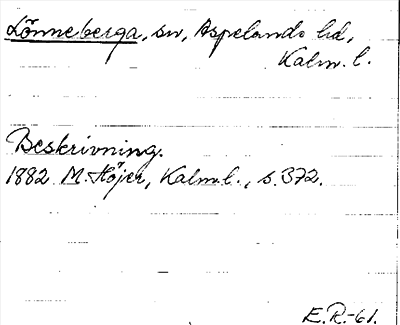 Lönneberga, sn, Aspelands hd,
Kalm. l.
Beskrivning.
1882 M. Höjer, Kalm. l., s. 372.
E.R.-61.